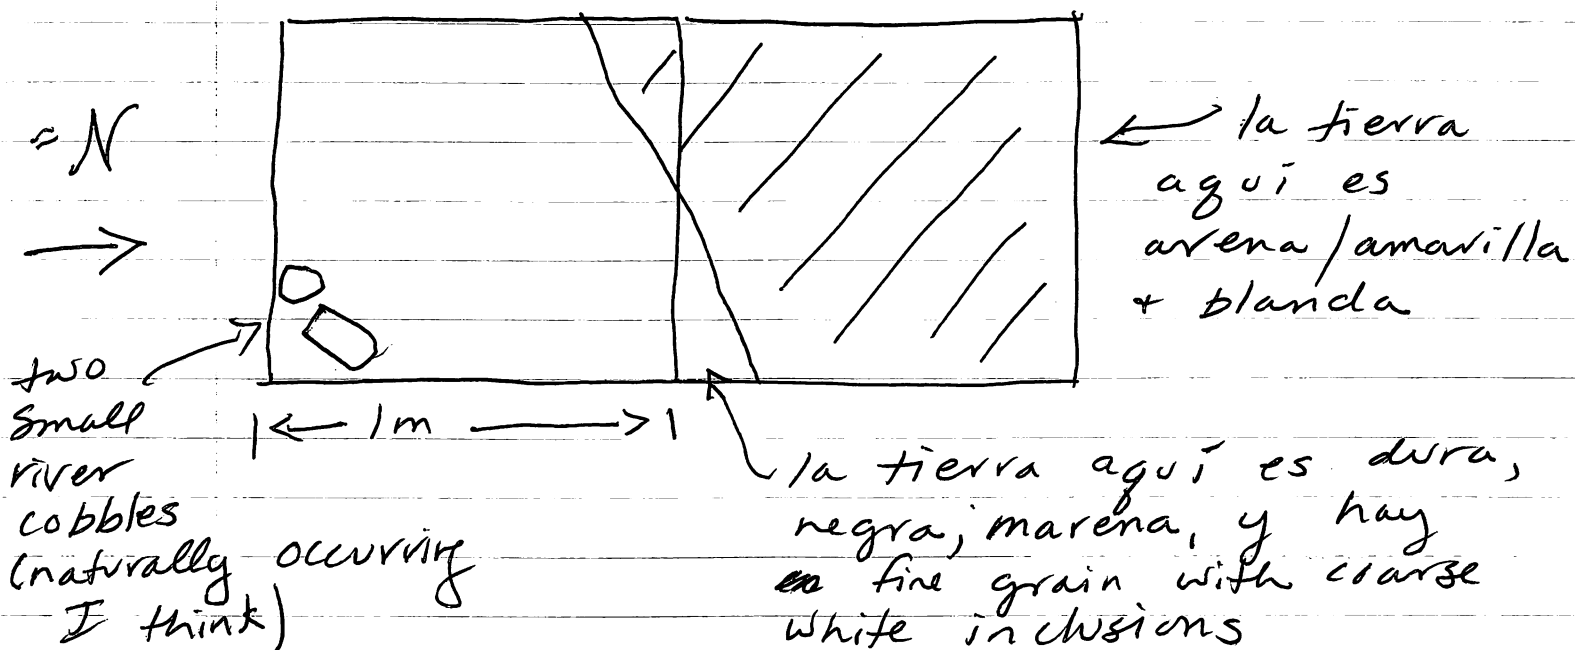 ≈ N
la tierra
aquí es
arena/amarilla
+ blanda
two
small
river
cobbles
(naturally occurring
I think)
1m
la tierra aquí es dura,
negra, marena, y hay
fine grain with coarse
white inclusions